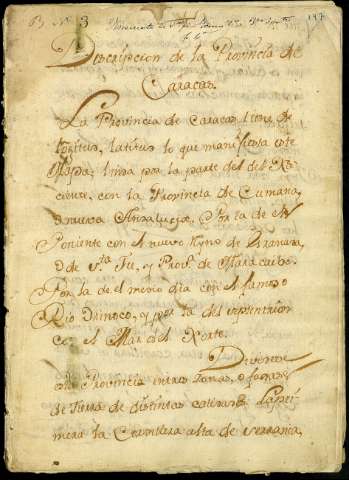 B. N.º 3
147
Descripcion de la Provincia de
Caracas.
La Provincia de Caracas tiene de
longitud, latitud lo que manifiesta este
Mapa; linda por la parte del
ciente, con la Provincia de Cumana,
o nueva Andalucia, Por la de el
Poniente con el nuevo Ryno de Granara,
o de Sta. Fee, y Prov.ª de Maracaibo.
Por la de el medio dia con el famoso
Rio Orinoco, y por la del septentrion
con el Mar del Norte.
Dividese
esta Provincia en tres Zonas, o fajas
de Tierra de distintas calidades. La pri
mera la Cordillera alta de serrania,